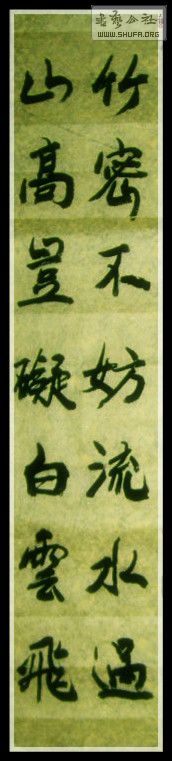 竹密不妨流水過
山高豈礙白雲飛
書藝公社
WWW.SHUFA.ORG